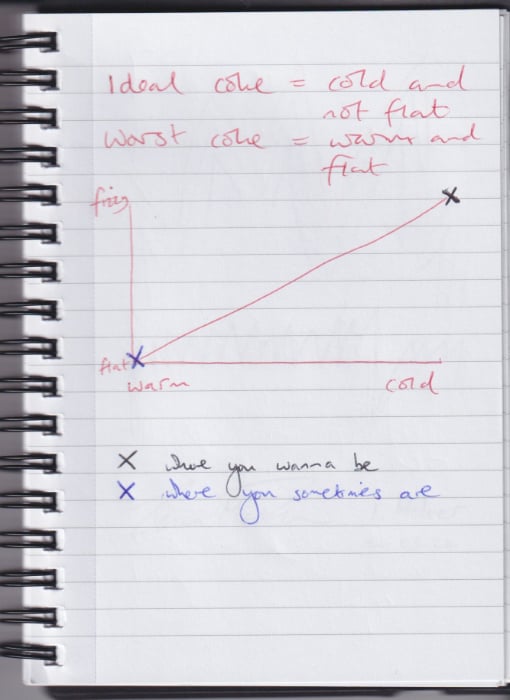 Ideal coke = cold and
not flat
Worst coke = warm and
flat
fizzy
X
flat X
warm cold
X where you wanna be
X where you sometimes are